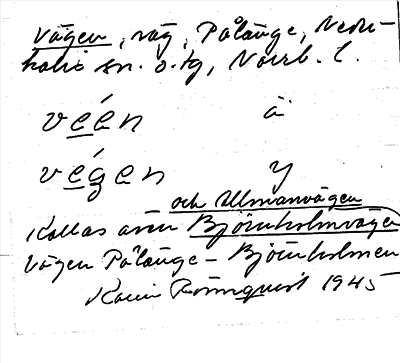 Vägen, väg, Pålänge, Neder-
kalix sn. o. tg, Norrb. l.
véen ä
végen y
och Ullmanvägen
Kallas även Björnholmvägen
Vägen Pålänge – Björnholmen
Karin Rönnquist 1945